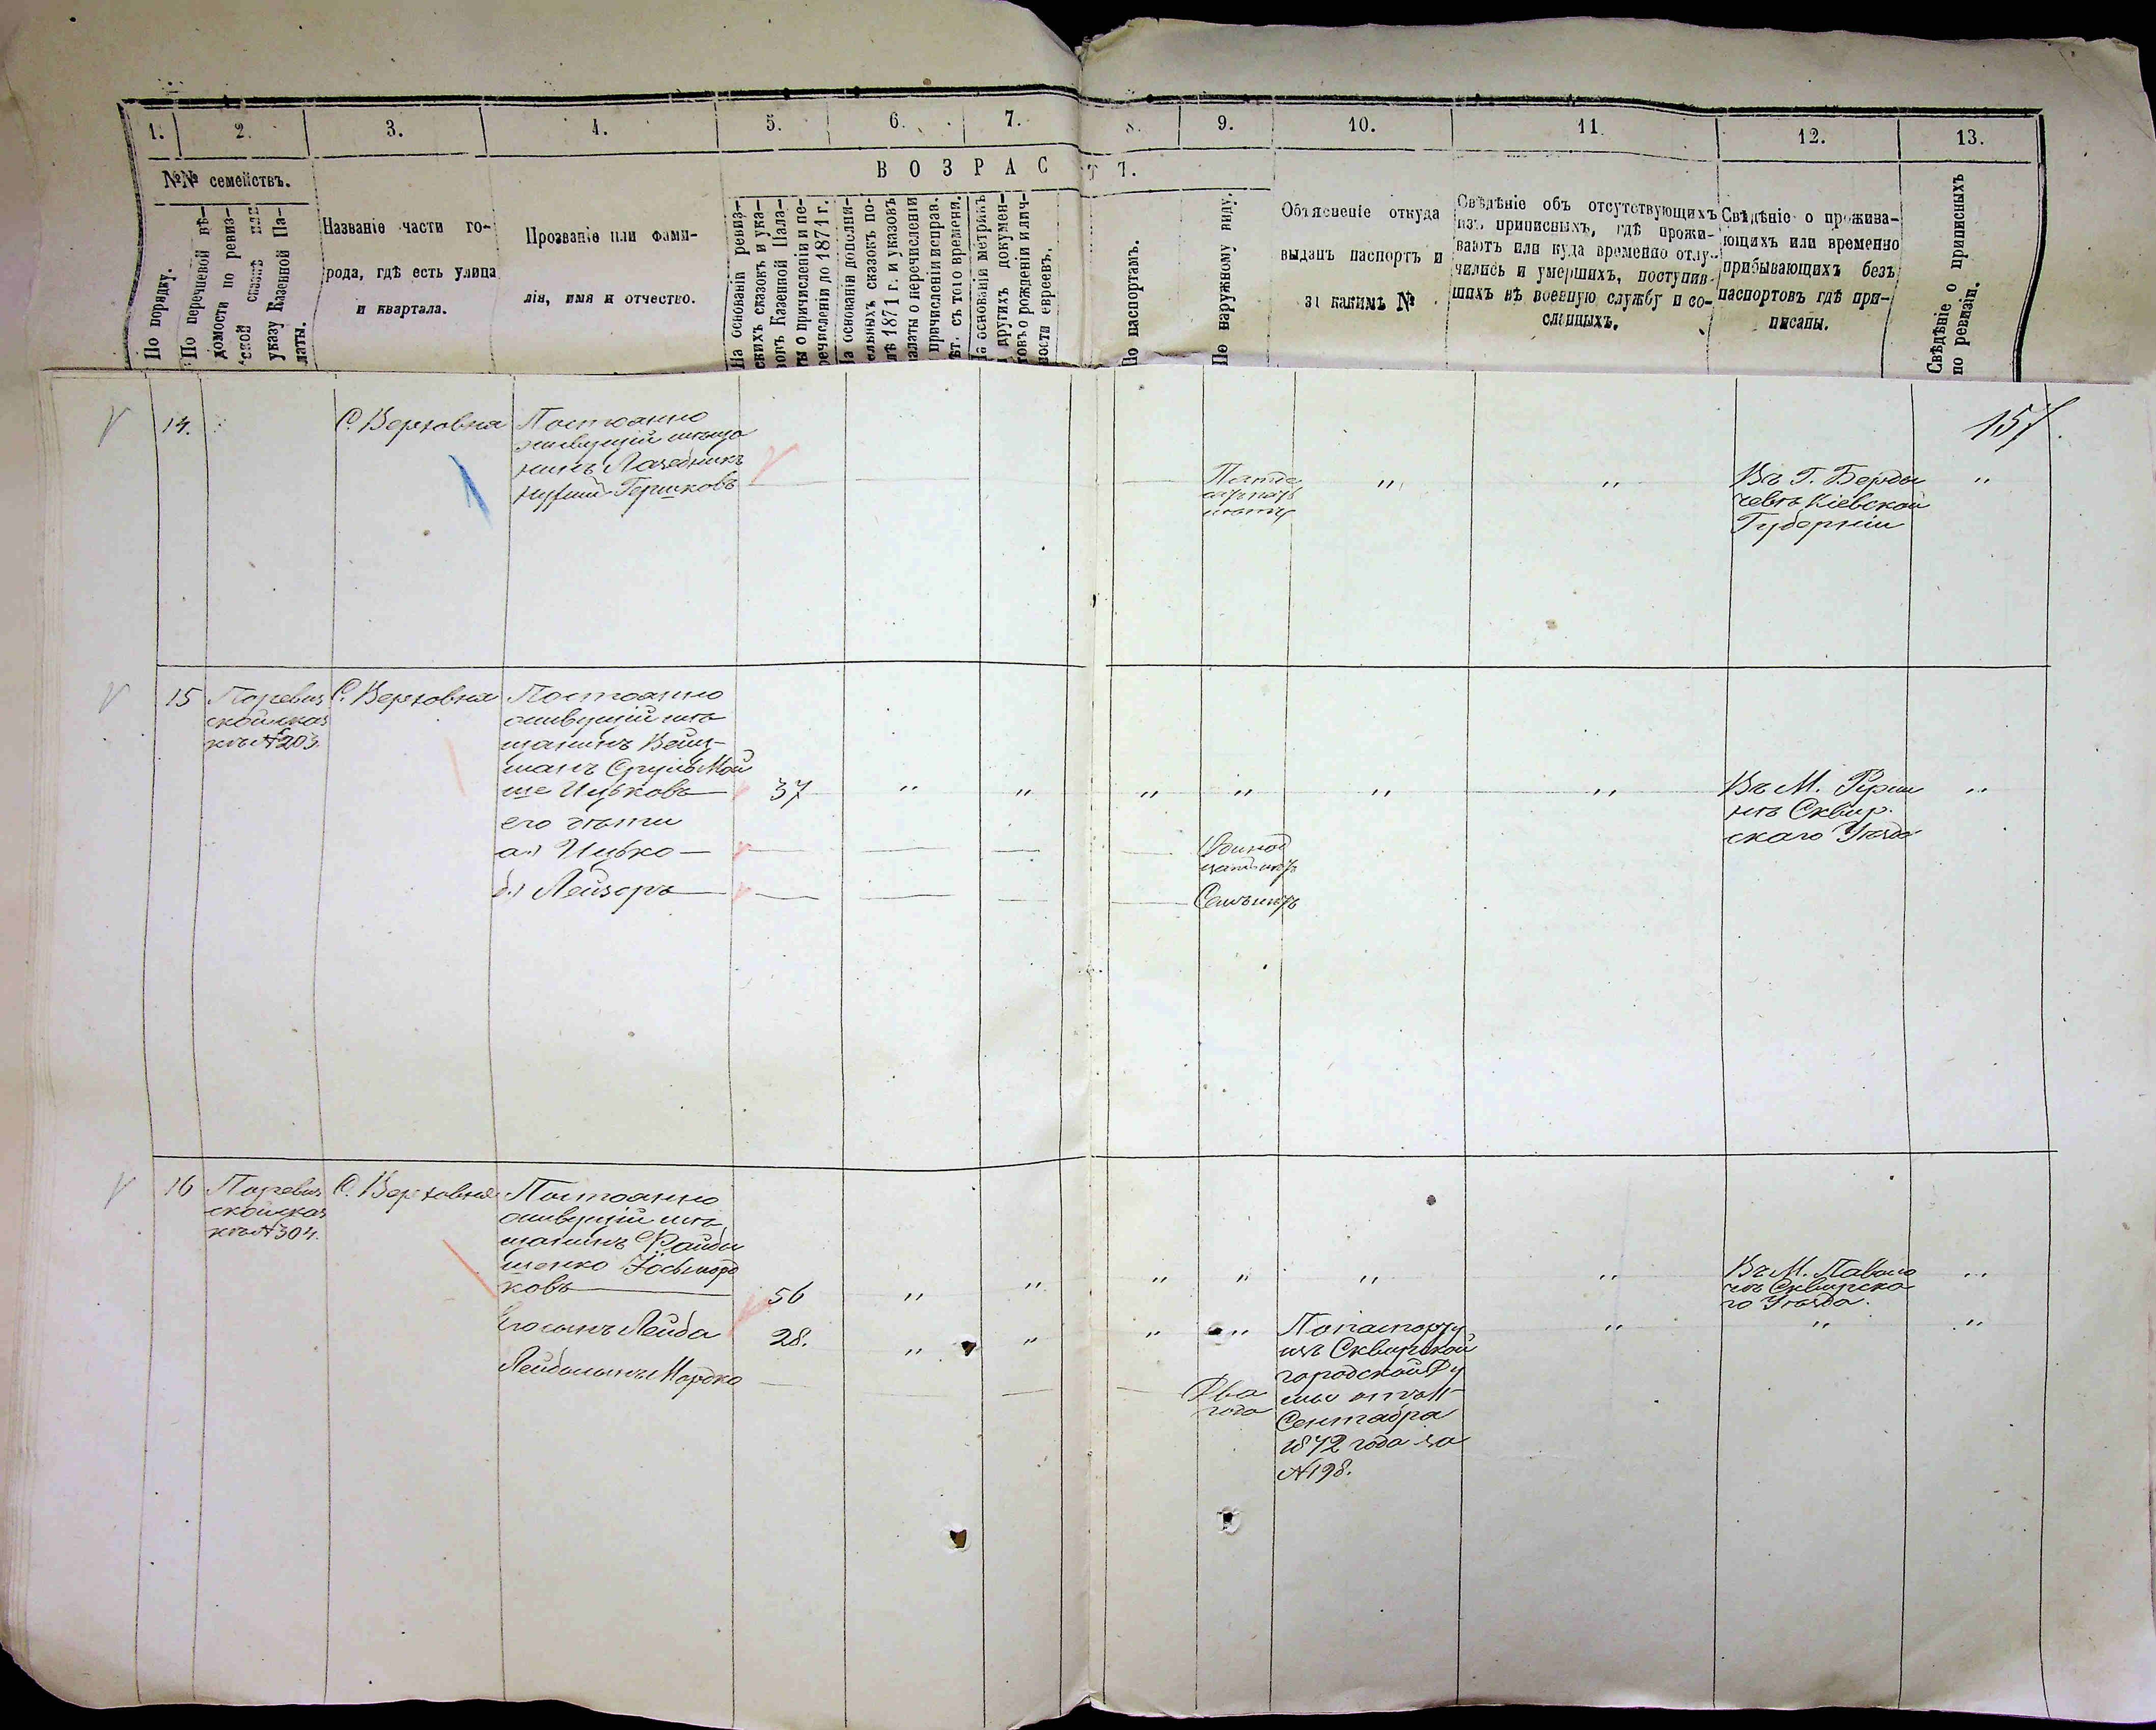 1. 2. 3. 4. 5. 6. 7. 8. 9. 10. 11. 12. 13.
ВОЗРАСТЪ.
№№ семействъ.
По порядку.
По перечневой вѣ-
домости по ревиз-
ской сказкѣ или
указу Казенной Па-
латы.
Названіе части го-
рода, гдѣ есть улица
и квартала.
Прозваніе или фами-
лія, имя и отчество.
На основаніи ревиз-
скихъ сказокъ и ука-
зовъ Казенной Пала-
ты о причисленіи и пе-
речисленіи до 1871 г.
На основаніи дополни-
тельныхъ сказокъ по-
слѣ 1871 г. и указовъ
палаты о перечисленіи
причисленіи исправ.
лѣт. съ того времени.
На основаніи метрикъ
и другихъ докумен-
товъ о рожденіи и лич-
ности евреевъ.
По паспортамъ.
По наружному виду.
Объясненіе откуда
выданъ паспортъ и
за какимъ №
Свѣдѣніе объ отсутствующихъ
изъ приписныхъ, гдѣ прожи-
ваютъ или куда временно отлу-
чились и умершихъ, поступив-
шихъ въ военную службу и со-
сланныхъ.
Свѣдѣніе о прожива-
ющихъ или временно
прибывающихъ безъ
паспортовъ гдѣ при-
писаны.
Свѣдѣніе о приписныхъ
по ревизіи.
157.
14.
С. Верховня
Постоянно
живущій мѣща
нинъ
Гершковъ
"
"
Въ Г. Берды
чевѣ Кіевской
Губерніи
"
15
По ревиз
ской сказ
кѣ № 203.
С. Верховня
Постоянно
живущій мѣ
щанинъ Вейц-
манъ Сруль Мой
ше Ицьковъ
37
" " " " " "
Въ М. Ружи
нѣ Сквир
скаго Уѣзда
"
его дѣти
а.) Ицько
Одинод
цать лѣтъ
б.) Лейзоръ
Семь лѣтъ
16
По ревиз
ской сказ
кѣ № 304.
С. Верховня
Постоянно
живущій мѣ
щанинъ Файби
шенко Іось Морд
ковъ
56
" " " " " "
Въ М. Паволо
чѣ Сквирска
го Уѣзда.
"
Его сынъ Лейба
28.
" " " "
По паспорту
изъ Сквирской
городской Ду
мы отъ 11
Сентября
1872 года за
№ 198.
" " "
Лейбы сынъ Мордко
Два
года